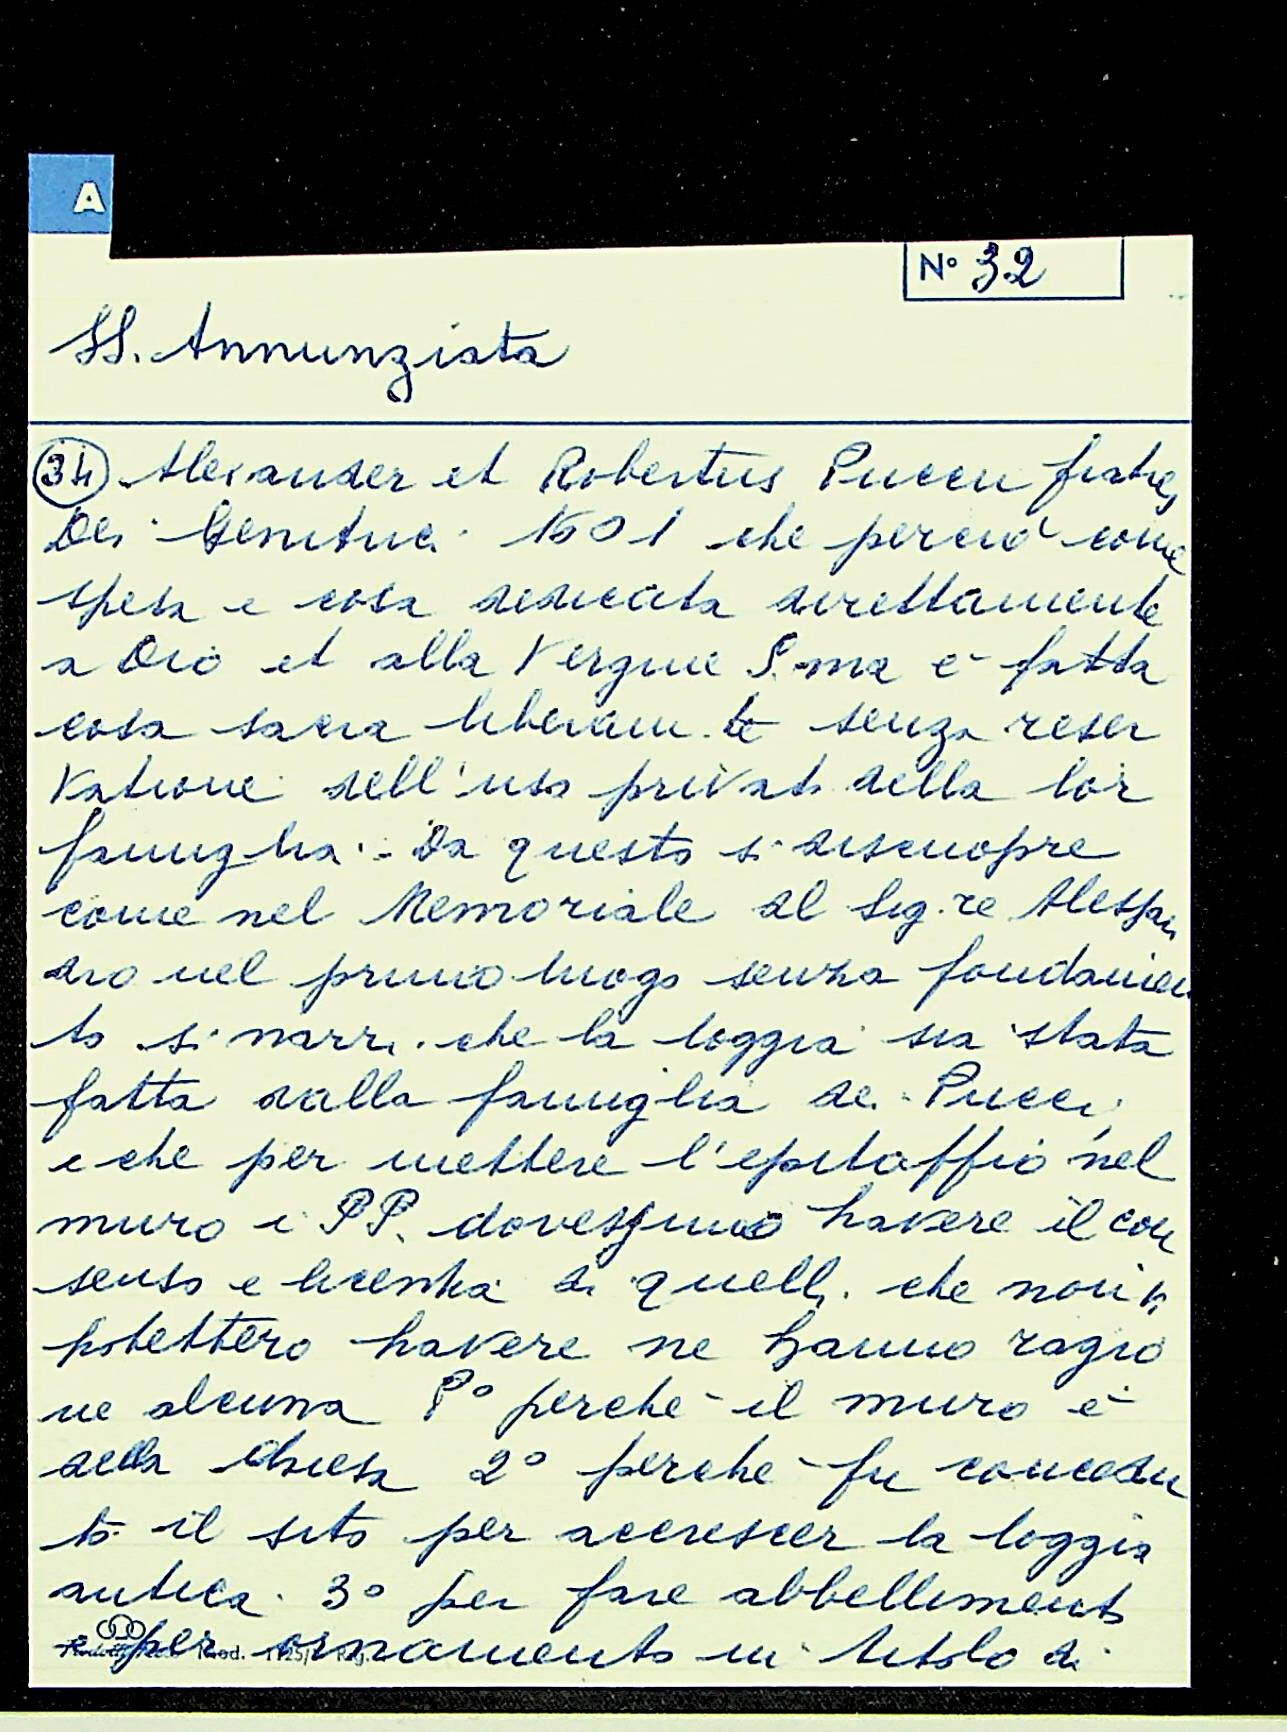 A
N° 32
SS. Annunziata
34 Alexander et Robertus Puccii fratres
Dei Genitrici 1601 che perciò come
spesa e cosa dedicata direttamente
a Dio et alla Vergine S.ma è fatta
cosa sacra liberam.te senza reser
vatione dell'uso privato della lor
famiglia. Da questo si discuopre
come nel Memoriale al Sig.re Alessan
dro nel primo luogo senza fondamen
to si narri che la loggia sia stata
fatta dalla famiglia de Pucci,
e che per mettere l'epitaffio nel
muro i PP. dovessino havere il con
senso e licentia di quelli che non vi
potettero havere ne hanno ragio
ne alcuna P° perchè il muro è
della chiesa 2° perchè fu concedu
to il sito per accrescer la loggia
antica. 3° per fare abbellimento
e per ornamento in titolo di
Mod.